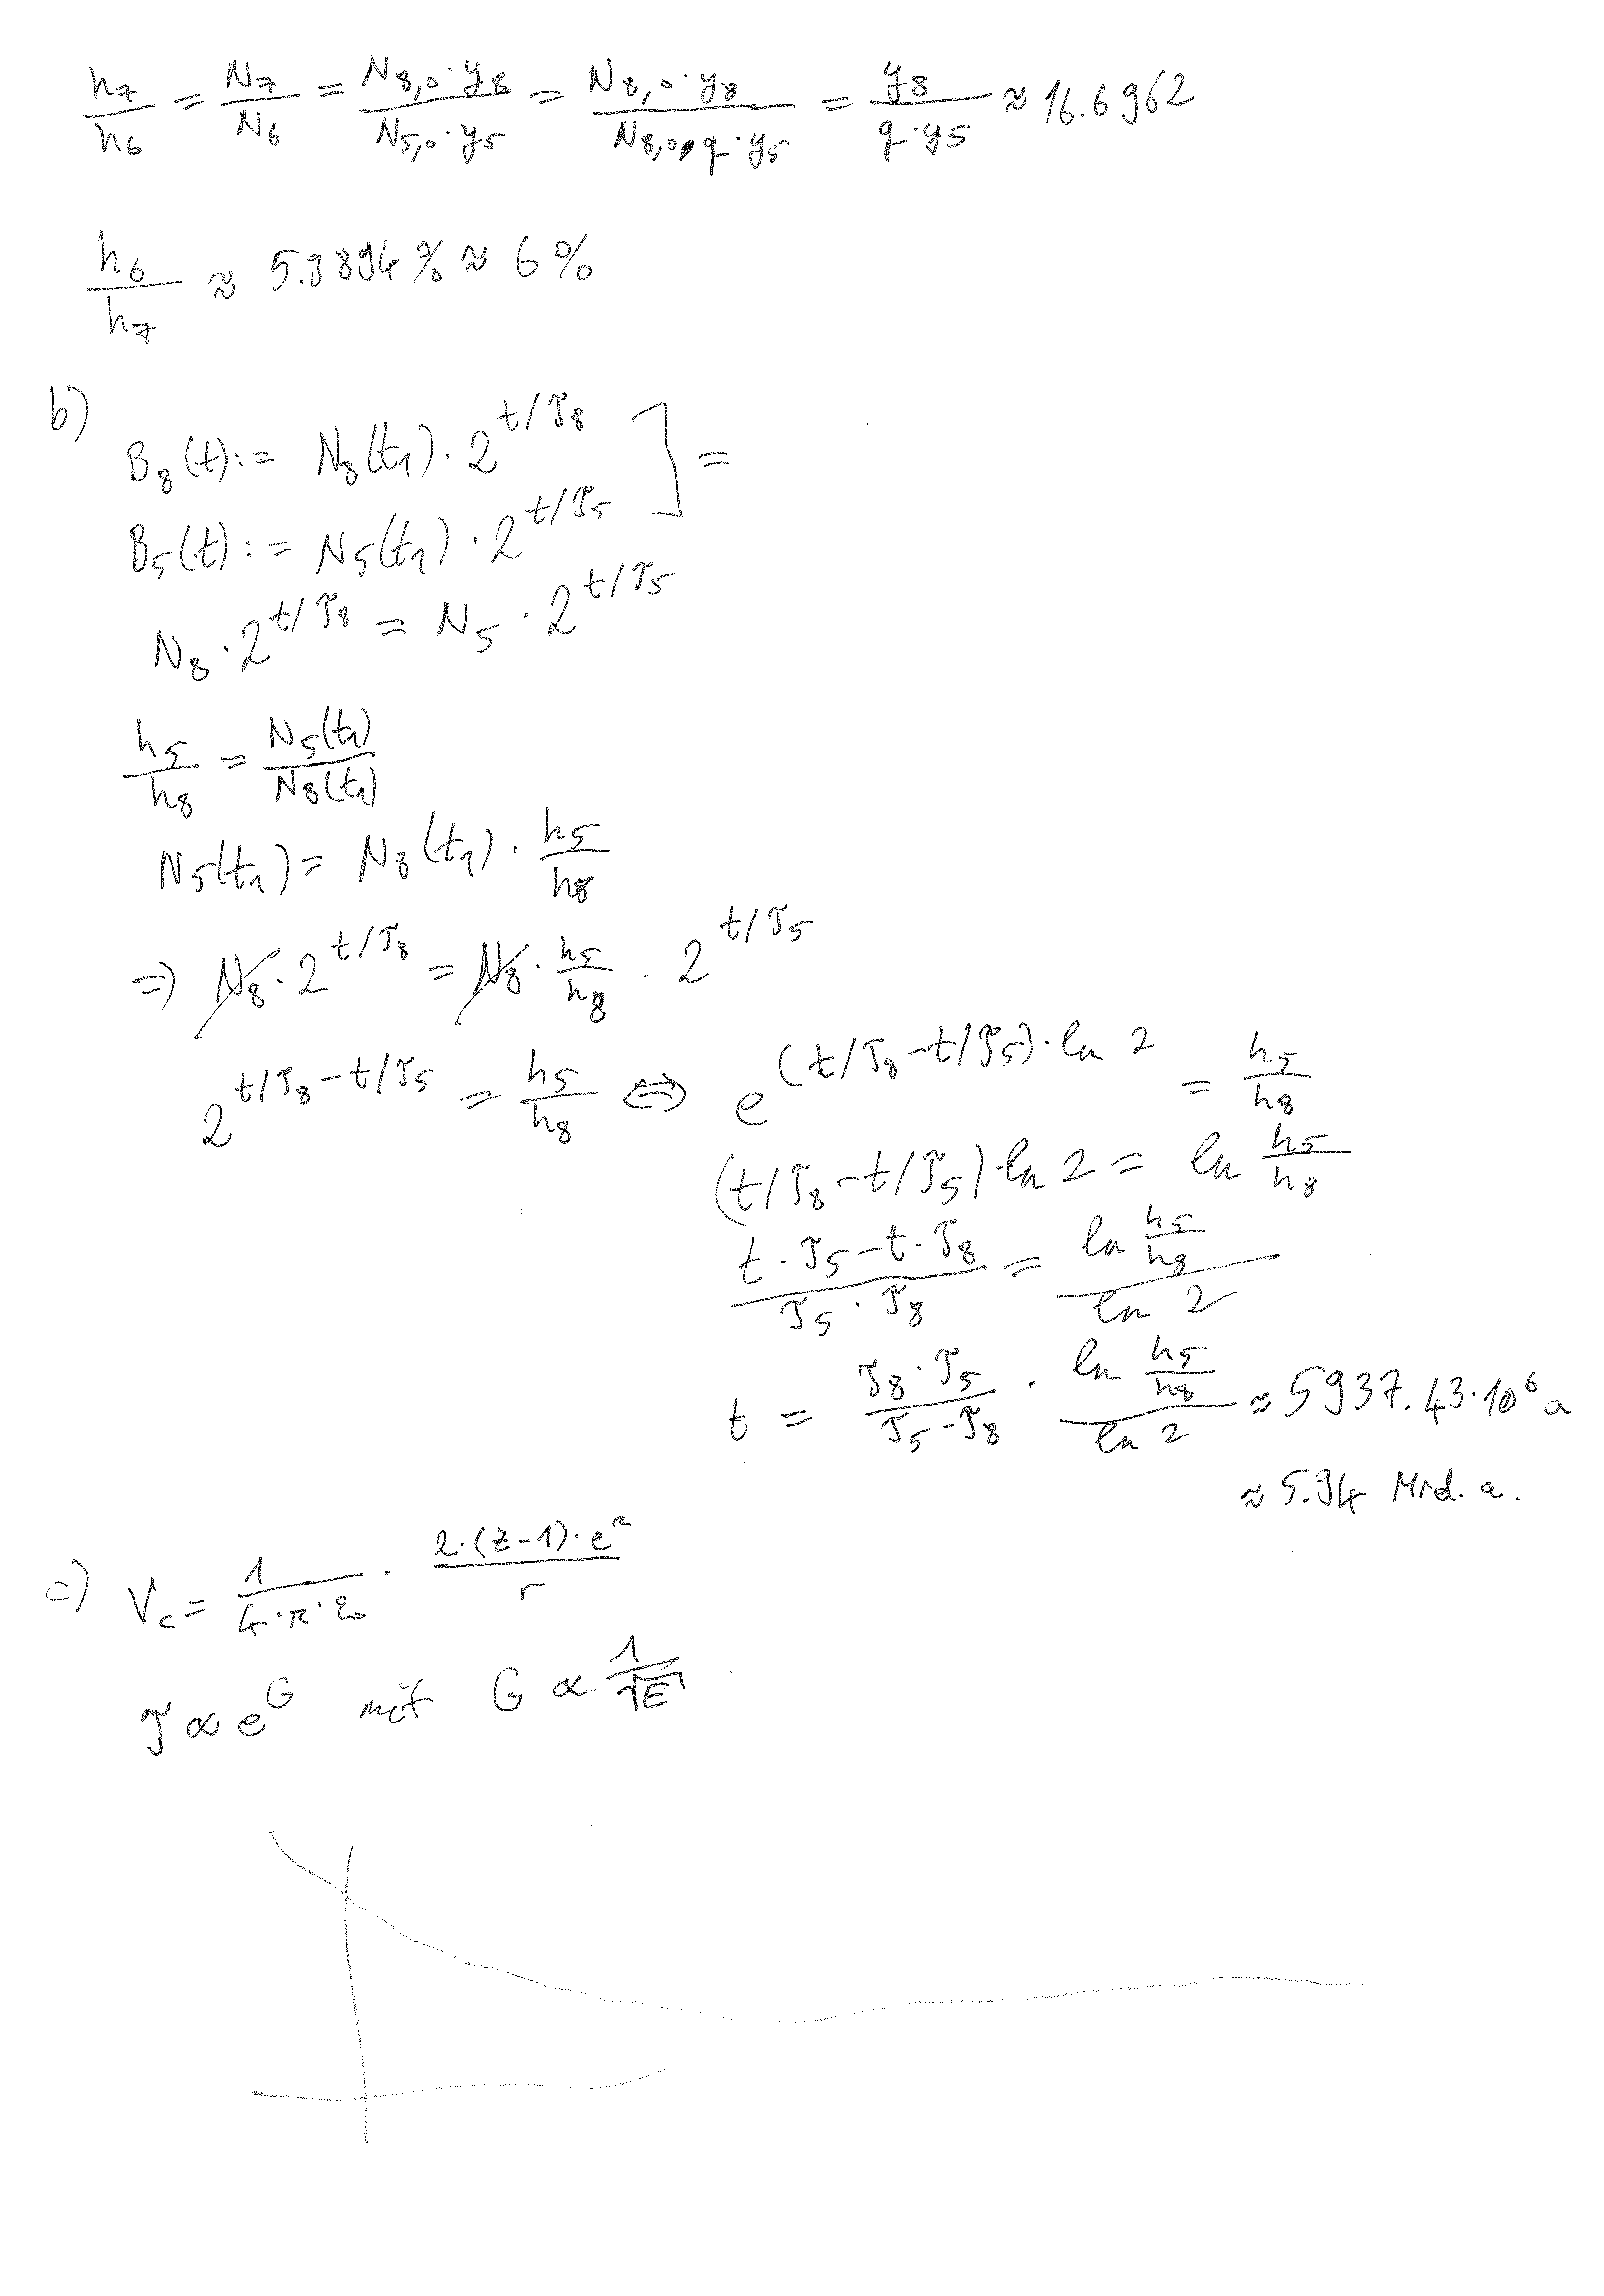 h₇/h₆ = N₇/N₆ = (N₈,₀·y₈)/(N₅,₀·y₅) = (N₈,₀·y₈)/(N₈,₀·q·y₅) = y₈/(q·y₅) ≈ 16.6962
h₆/h₇ ≈ 5.9894% ≈ 6%
b)
B₈(t) := N₈(t₁)·2^(t/T₈) ] =
B₅(t) := N₅(t₁)·2^(t/T₅)
N₈·2^(t/T₈) = N₅·2^(t/T₅)
h₅/h₈ = N₅(t₁)/N₈(t₁)
N₅(t₁) = N₈(t₁)·h₅/h₈
=> N₈·2^(t/T₈) = N₈·h₅/h₈·2^(t/T₅)
2^(t/T₈-t/T₅) = h₅/h₈ <=> e^((t/T₈-t/T₅)·ln 2) = h₅/h₈
(t/T₈-t/T₅)·ln 2 = ln h₅/h₈
(t·T₅-t·T₈)/(T₅·T₈) = (ln h₅/h₈)/(ln 2)
t = (T₈·T₅)/(T₅-T₈) · (ln h₅/h₈)/(ln 2) ≈ 5937.43·10⁶ a
≈ 5.94 Mrd. a.
c) V_c = 1/(4·π·ε₀) · (2·(Z-1)·e²)/r
T ∝ e^G mit G ∝ 1/√E